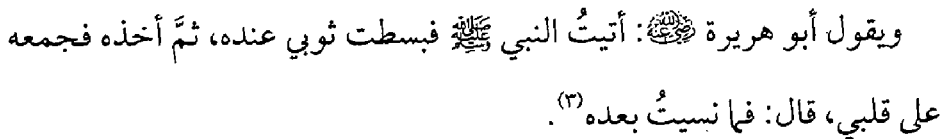 ويقول أبو هريرة رضي الله عنه: أتيتُ النبي ﷺ فبسطت ثوبي عنده، ثمَّ أخذه فجمعه
على قلبي، قال: فما نسيتُ بعده(٣).